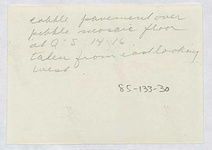 cobble pavement over
pebble mosaic floor
at Q 5 14-16
taken from east looking
west
85-133-30